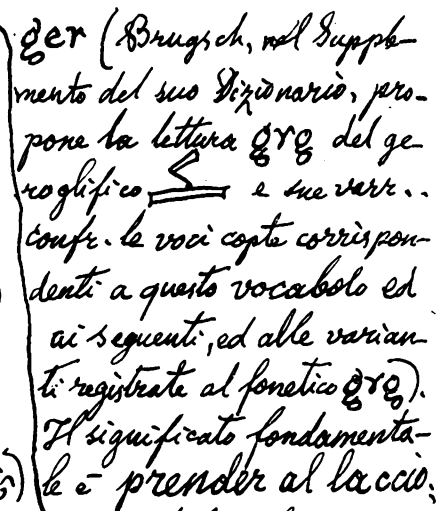 ger (Brugsch, nel Supple-
mento del suo Dizionario, pro-
pone la lettura grg del ge-
roglifico e sue varr..
confr. le voci copte corrispon-
denti a questo vocabolo ed
ai seguenti, ed alle varian-
ti registrate al fonetico grg).
Il significato fondamenta-
le è prender al laccio,